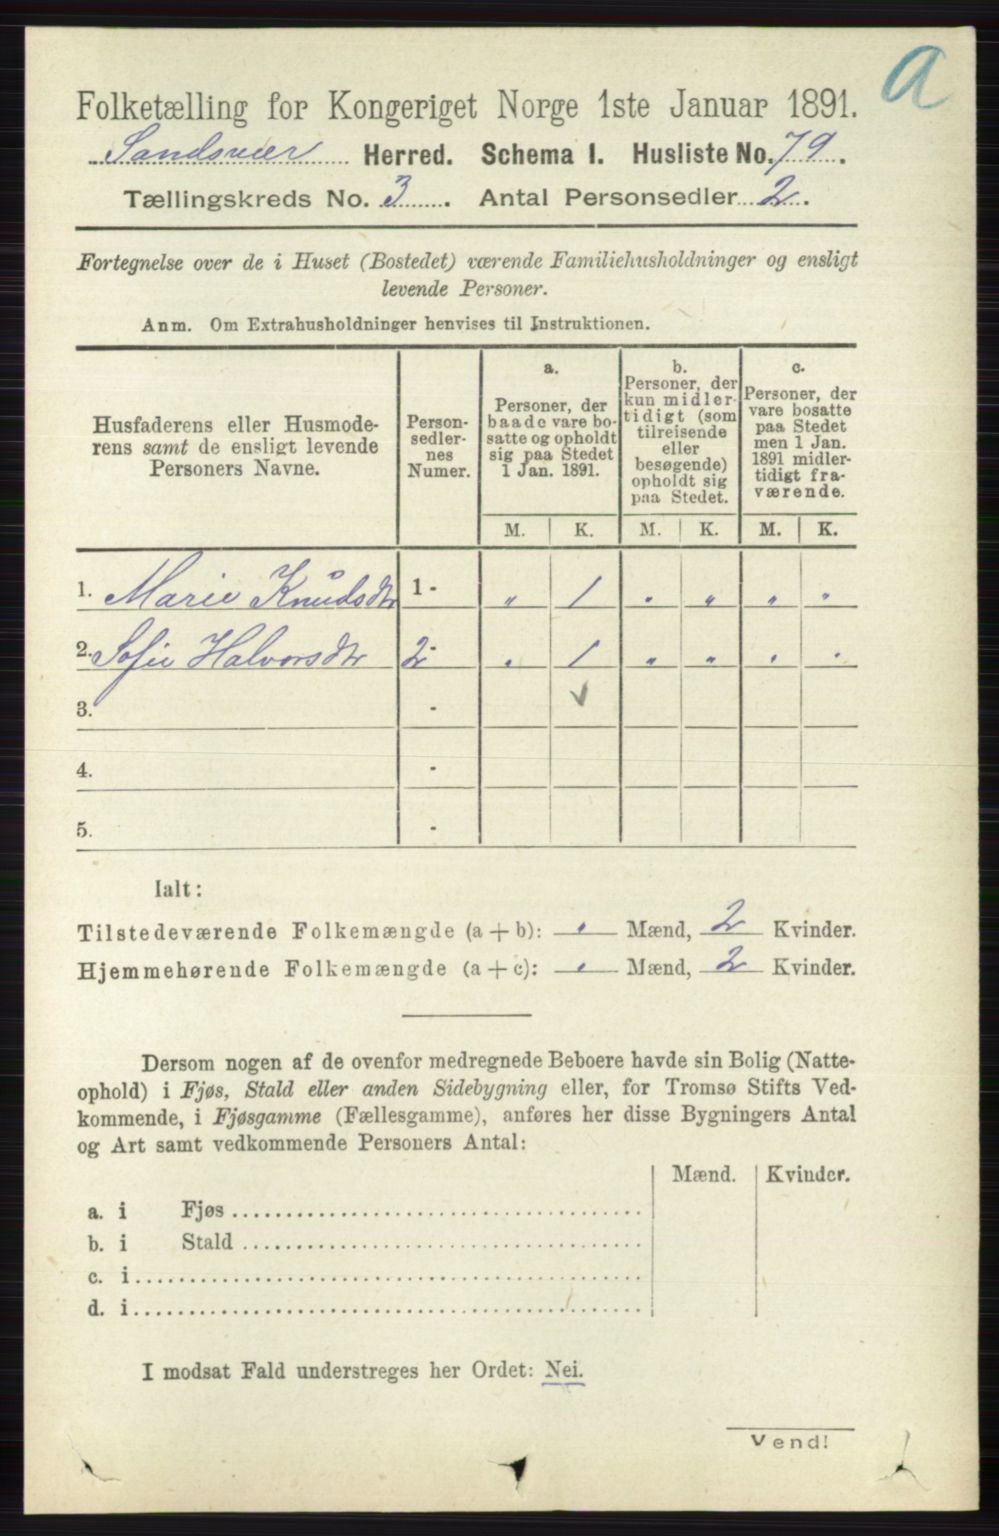 a
Folketælling for Kongeriget Norge 1ste Januar 1891.
Sandsvær Herred. Schema I. Husliste No. 79.
Tællingskreds No. 3. Antal Personsedler 2.
Fortegnelse over de i Huset (Bostedet) værende Familiehusholdninger og ensligt
levende Personer.
Anm. Om Extrahusholdninger henvises til Instruktionen.
Husfaderens eller Husmode-
rens samt de ensligt levende
Personers Navne.
Person-
sedler-
nes
Numer.
a.
Personer, der
baade vare bo-
satte og opholdt
sig paa Stedet
1 Jan. 1891.
b.
Personer, der
kun midler-
tidigt (som
tilreisende
eller
besøgende)
opholdt sig
paa Stedet.
c.
Personer, der
vare bosatte
paa Stedet
men 1 Jan.
1891 midler-
tidigt fra-
værende.
M. K. M. K. M. K.
1. Marie Knudsdtr 1 - „ 1 „ „ „ „
2. Sofie Halvorsdtr 2 - „ 1 „ „ „ „
3. -
4. -
5. -
Ialt:
Tilstedeværende Folkemængde (a + b): „ Mænd, 2 Kvinder.
Hjemmehørende Folkemængde (a + c): „ Mænd, 2 Kvinder.
Dersom nogen af de ovenfor medregnede Beboere havde sin Bolig (Natte-
ophold) i Fjøs, Stald eller anden Sidebygning eller, for Tromsø Stifts Ved-
kommende, i Fjøsgamme (Fællesgamme), anføres her disse Bygningers Antal
og Art samt vedkommende Personers Antal:
Mænd. Kvinder.
a. i Fjøs
b. i Stald
c. i
d. i
I modsat Fald understreges her Ordet: Nei.
Vend!